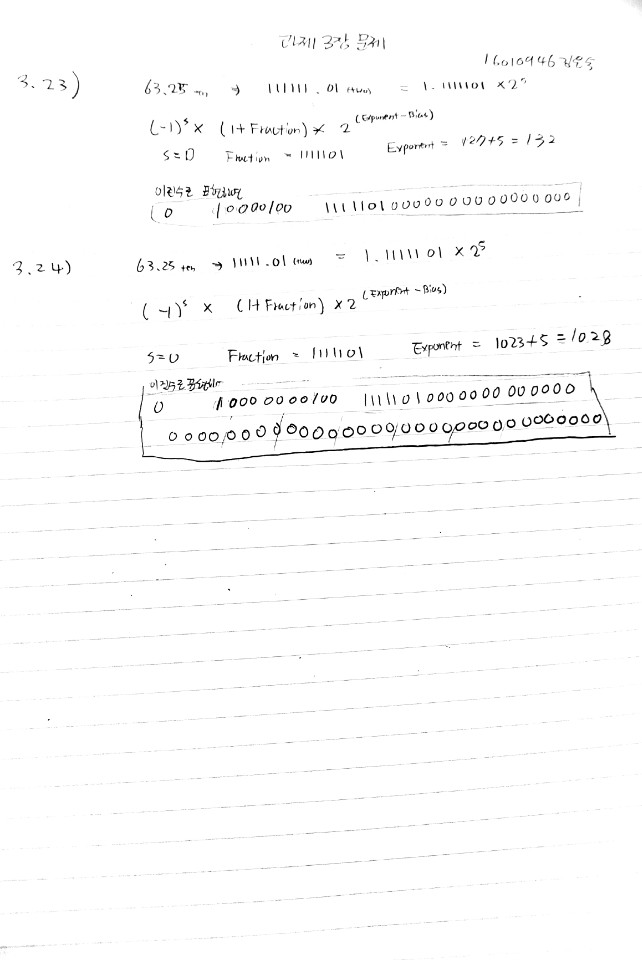 과제 3장 문제
16010946
3.23) 63.25 ten → 111111.01 (two) = 1.1111101 × 2^5
(-1)^s × (1+Fraction) × 2^(Exponent-Bias)
S=0 Fraction = 1111101 Exponent = 127+5 = 132
이진수로 표현하면
0 10000100 11111010000000000000000
3.24) 63.25 ten → 11111.01 (two) = 1.1111101 × 2^5
(-1)^s × (1+Fraction) × 2^(Exponent-Bias)
S=0 Fraction = 1111101 Exponent = 1023+5 = 1028
이진수로 표현하면
0 10000000100 11111010000000000000